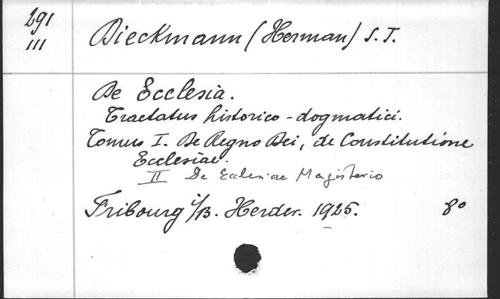 291
III
Dieckmann (Herman) S. T.
De Ecclesia.
Tractatus historico-dogmatici.
Tomus I. De Regno Dei, de Constitutione
Ecclesiae.
II De Ecclesiae Magisterio
Fribourg i/B. Herder. 1925. 8°